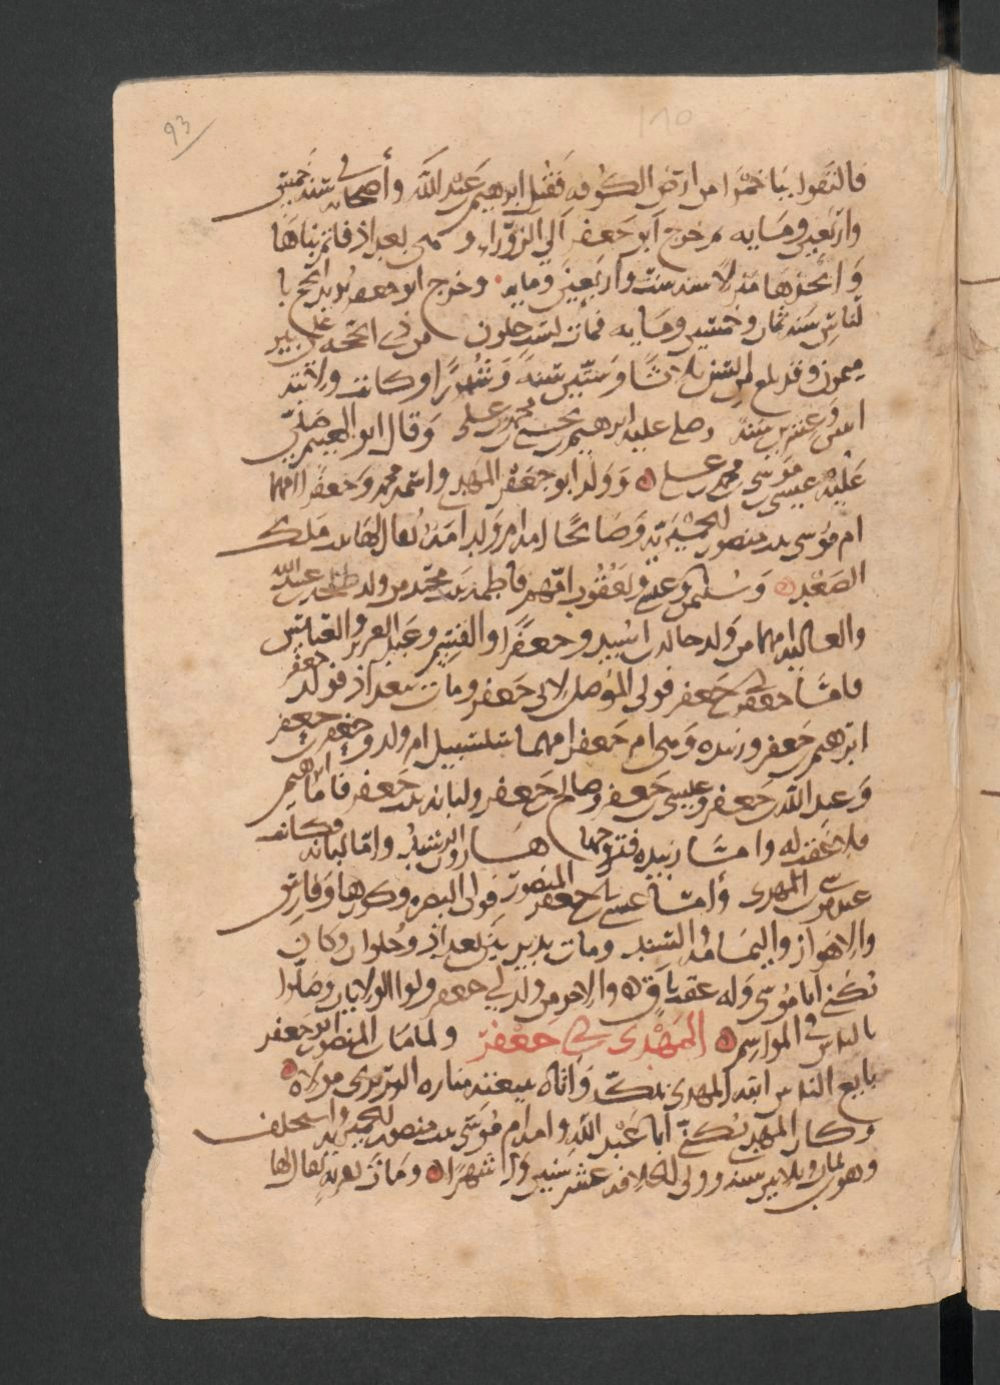 93
١٨٥
فالتقوا بباخمرا من ارض الكوفه فقتل ابرهيم بن عبد الله وأصحابه في سنه خمس
واربعين ومايه ثم خرج ابو جعفر الي الزوراء وهى بغداذ فاتم بناها
واتخذها منزلا سنه ست واربعين ومايه وخرج ابو جعفر يريد الحج با
لناس سنه ثمان وخمسين ومايه فمات لست خلون من ذي الحجه على بير
ميمون وقد بلغ من السن ثلاثا وستين سنة وشهورا وكانت ولايته
اثنين وعشرين سنة وصلى عليه ابرهيم بن يحيى بن محمد بن على وقال ابو الهيثم صلى
عليه عيسى بن موسى بن محمد بن على وولد ابو جعفر المهدي واسمه محمد وجعفرا امهما
ام موسى بنت منصور الحميرية وصالحا امه ام ولد امة يقال لها بنت ملك
الصغد وسليمن وعيسى ويعقوب امهم فاطمه بنت محمد من ولد طلحه بن عبيد الله
والعاليه امها من ولد خالد بن اسيد وجعفرا والقسم وعبد العزيز والعباس
فاما جعفر بن ابي جعفر فولى الموصل لابي جعفر ومات ببغداذ فولد جعفر
ابرهيم بن جعفر وزبيده وهى ام جعفر امهما سلسبيل ام ولد وجعفر بن جعفر
وعبد الله بن جعفر وعيسى بن جعفر وصالح بن جعفر ولبانه بنت جعفر فاما ابرهيم
فلا عقب له واما زبيده فتزوجها هارون الرشيد واما لبانه فكانت
عند موسى بن المهدى وأما عيسى بن جعفر بن المنصور فولى البصره وكورها وفارس
والاهواز واليمامه والسند ومات بدير بين بغداذ وحلوان وكان
يكنى ابا موسى وله عقب باق والاخر من ولد ابي جعفر ولوا الولايات وصلوا
بالناس في المواسم المهدى بن ابي جعفر ولما مات المنصور ابو جعفر
بايع الناس ابنه المهدى بمكة وأتاه ببيعته مناره البربرى مولاه
وكان المهدي يكنى أبا عبد الله وامه ام موسى بنت منصور الحميريه واستخلف
وهو ابن ثمان وثلاثين سنه وولى الخلافه عشر سنين وشهرا ومات بقرية يقال لها